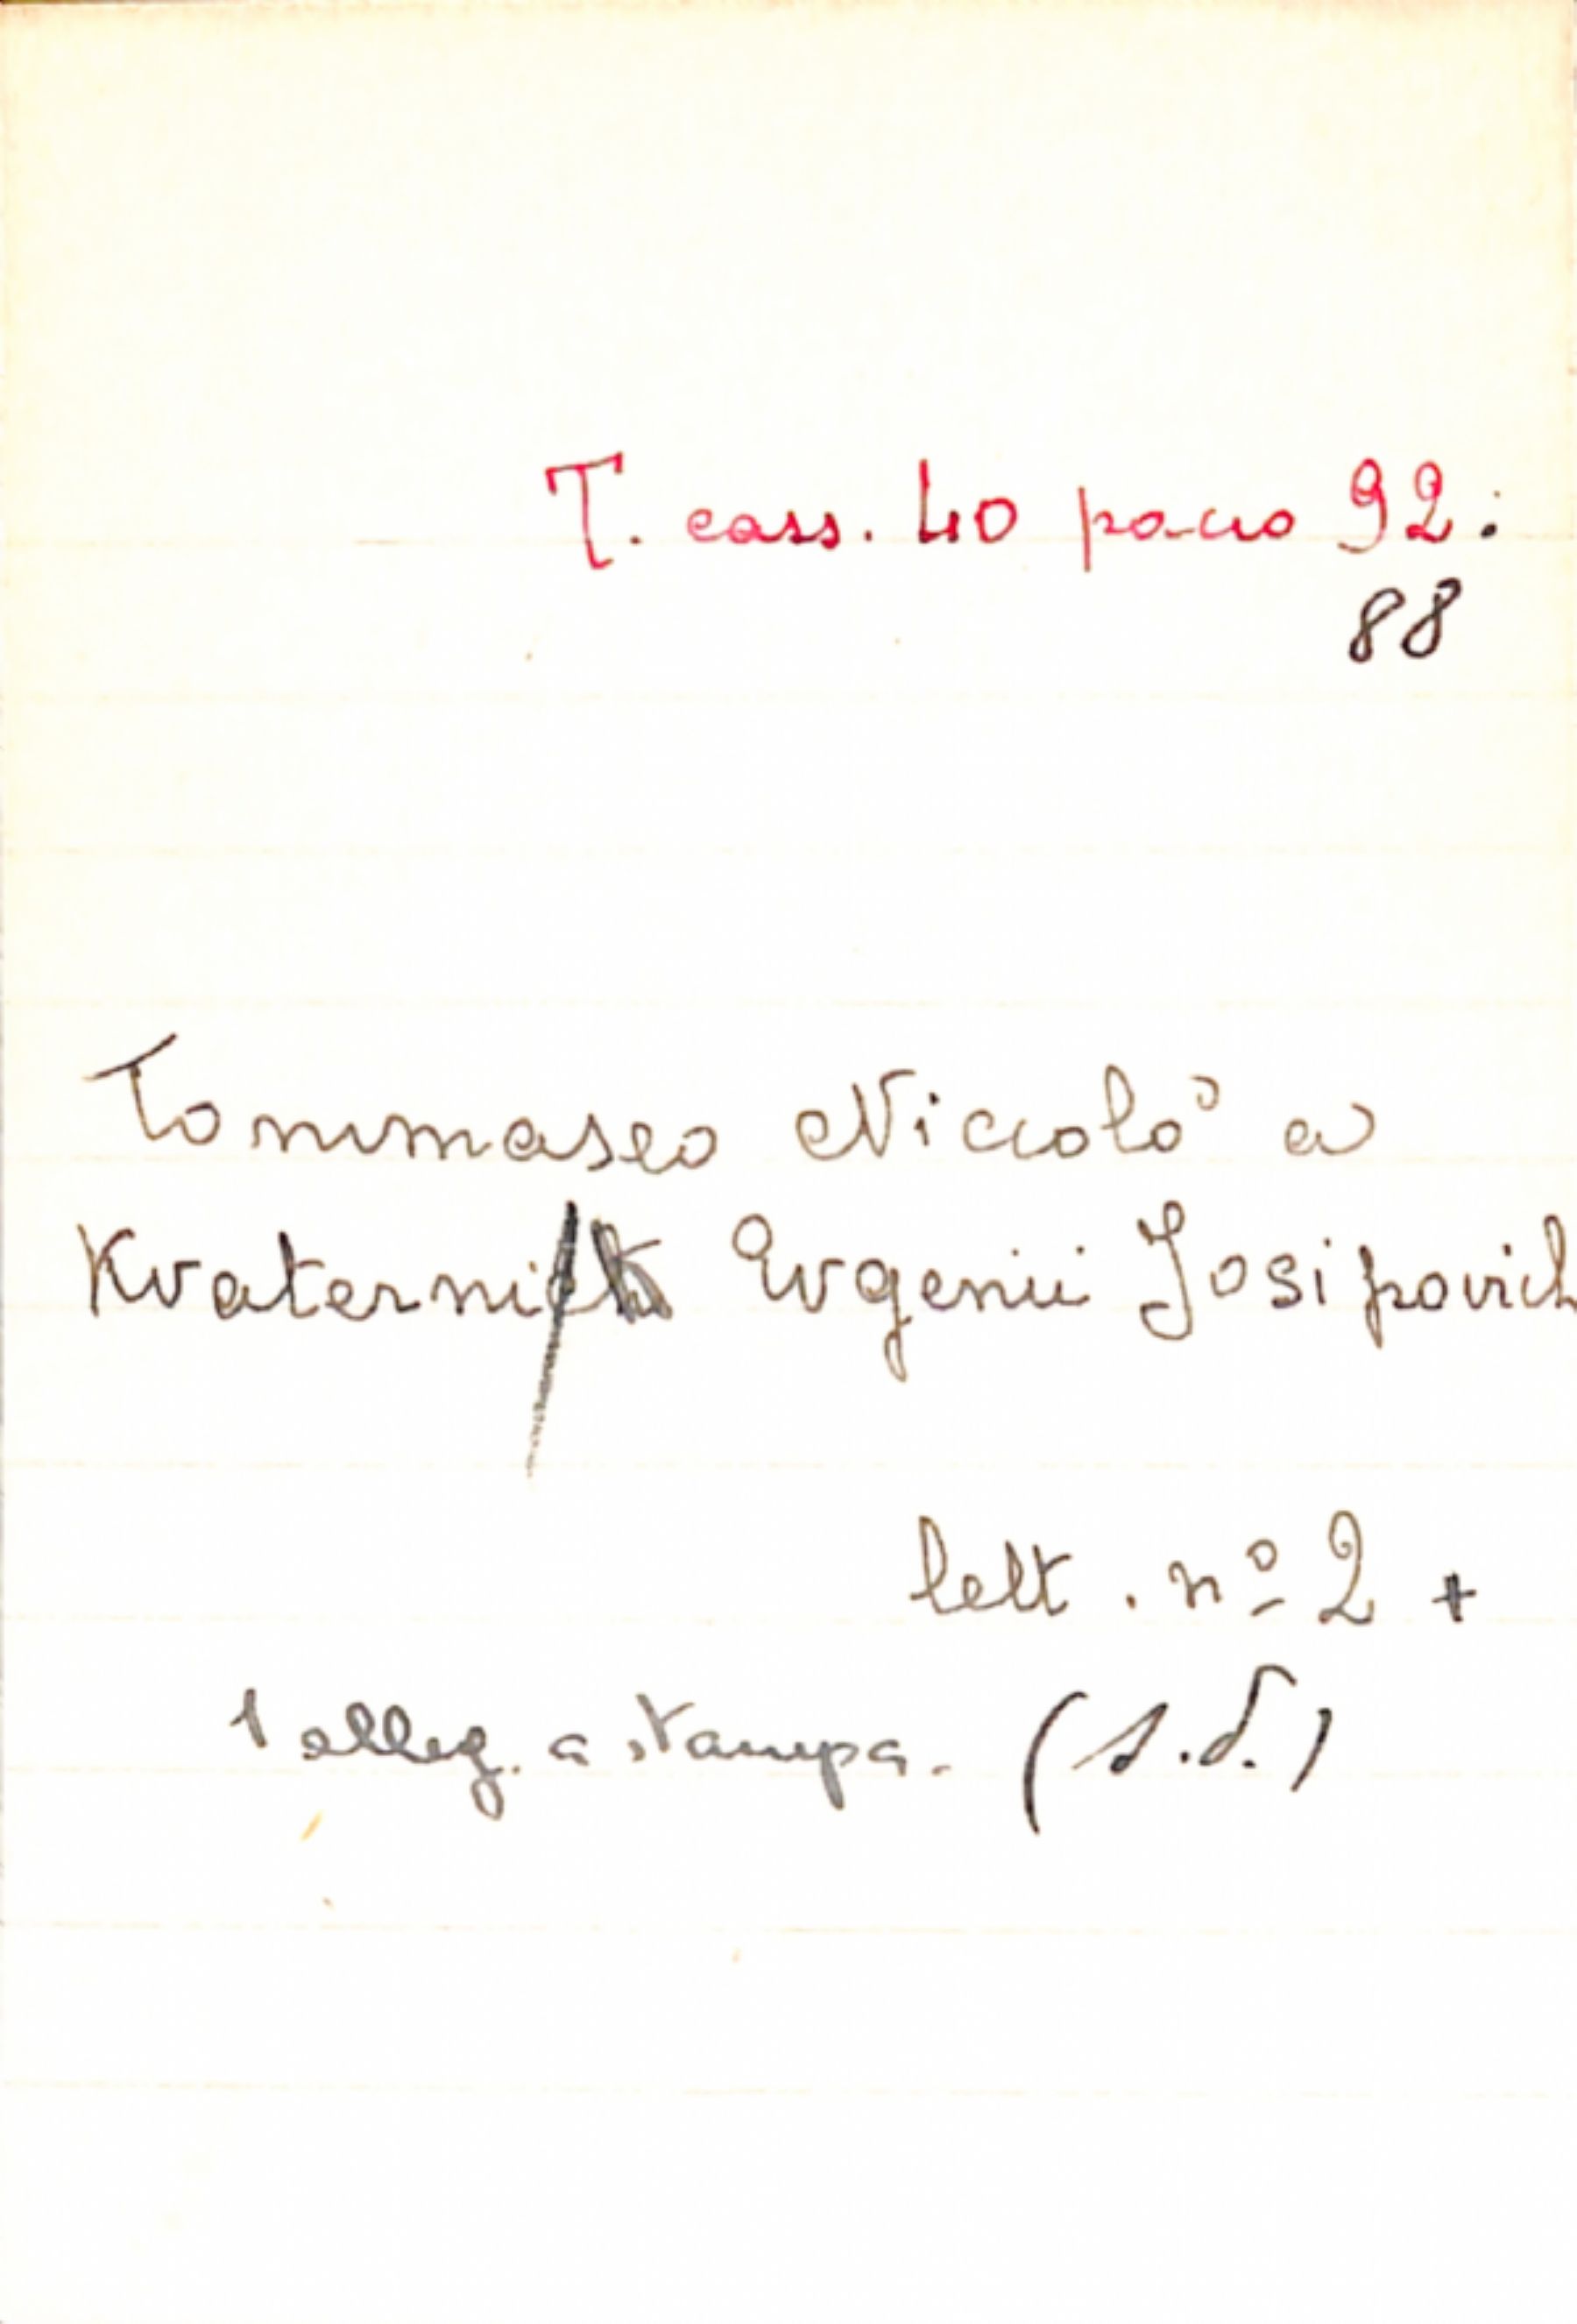 T. cass. 40 pacco 92:
88
Tommaseo Niccolò a
Kvaternik Evgenii Josipovich
lett. nº 2 +
1 alleg. a stampa. (s.d.)